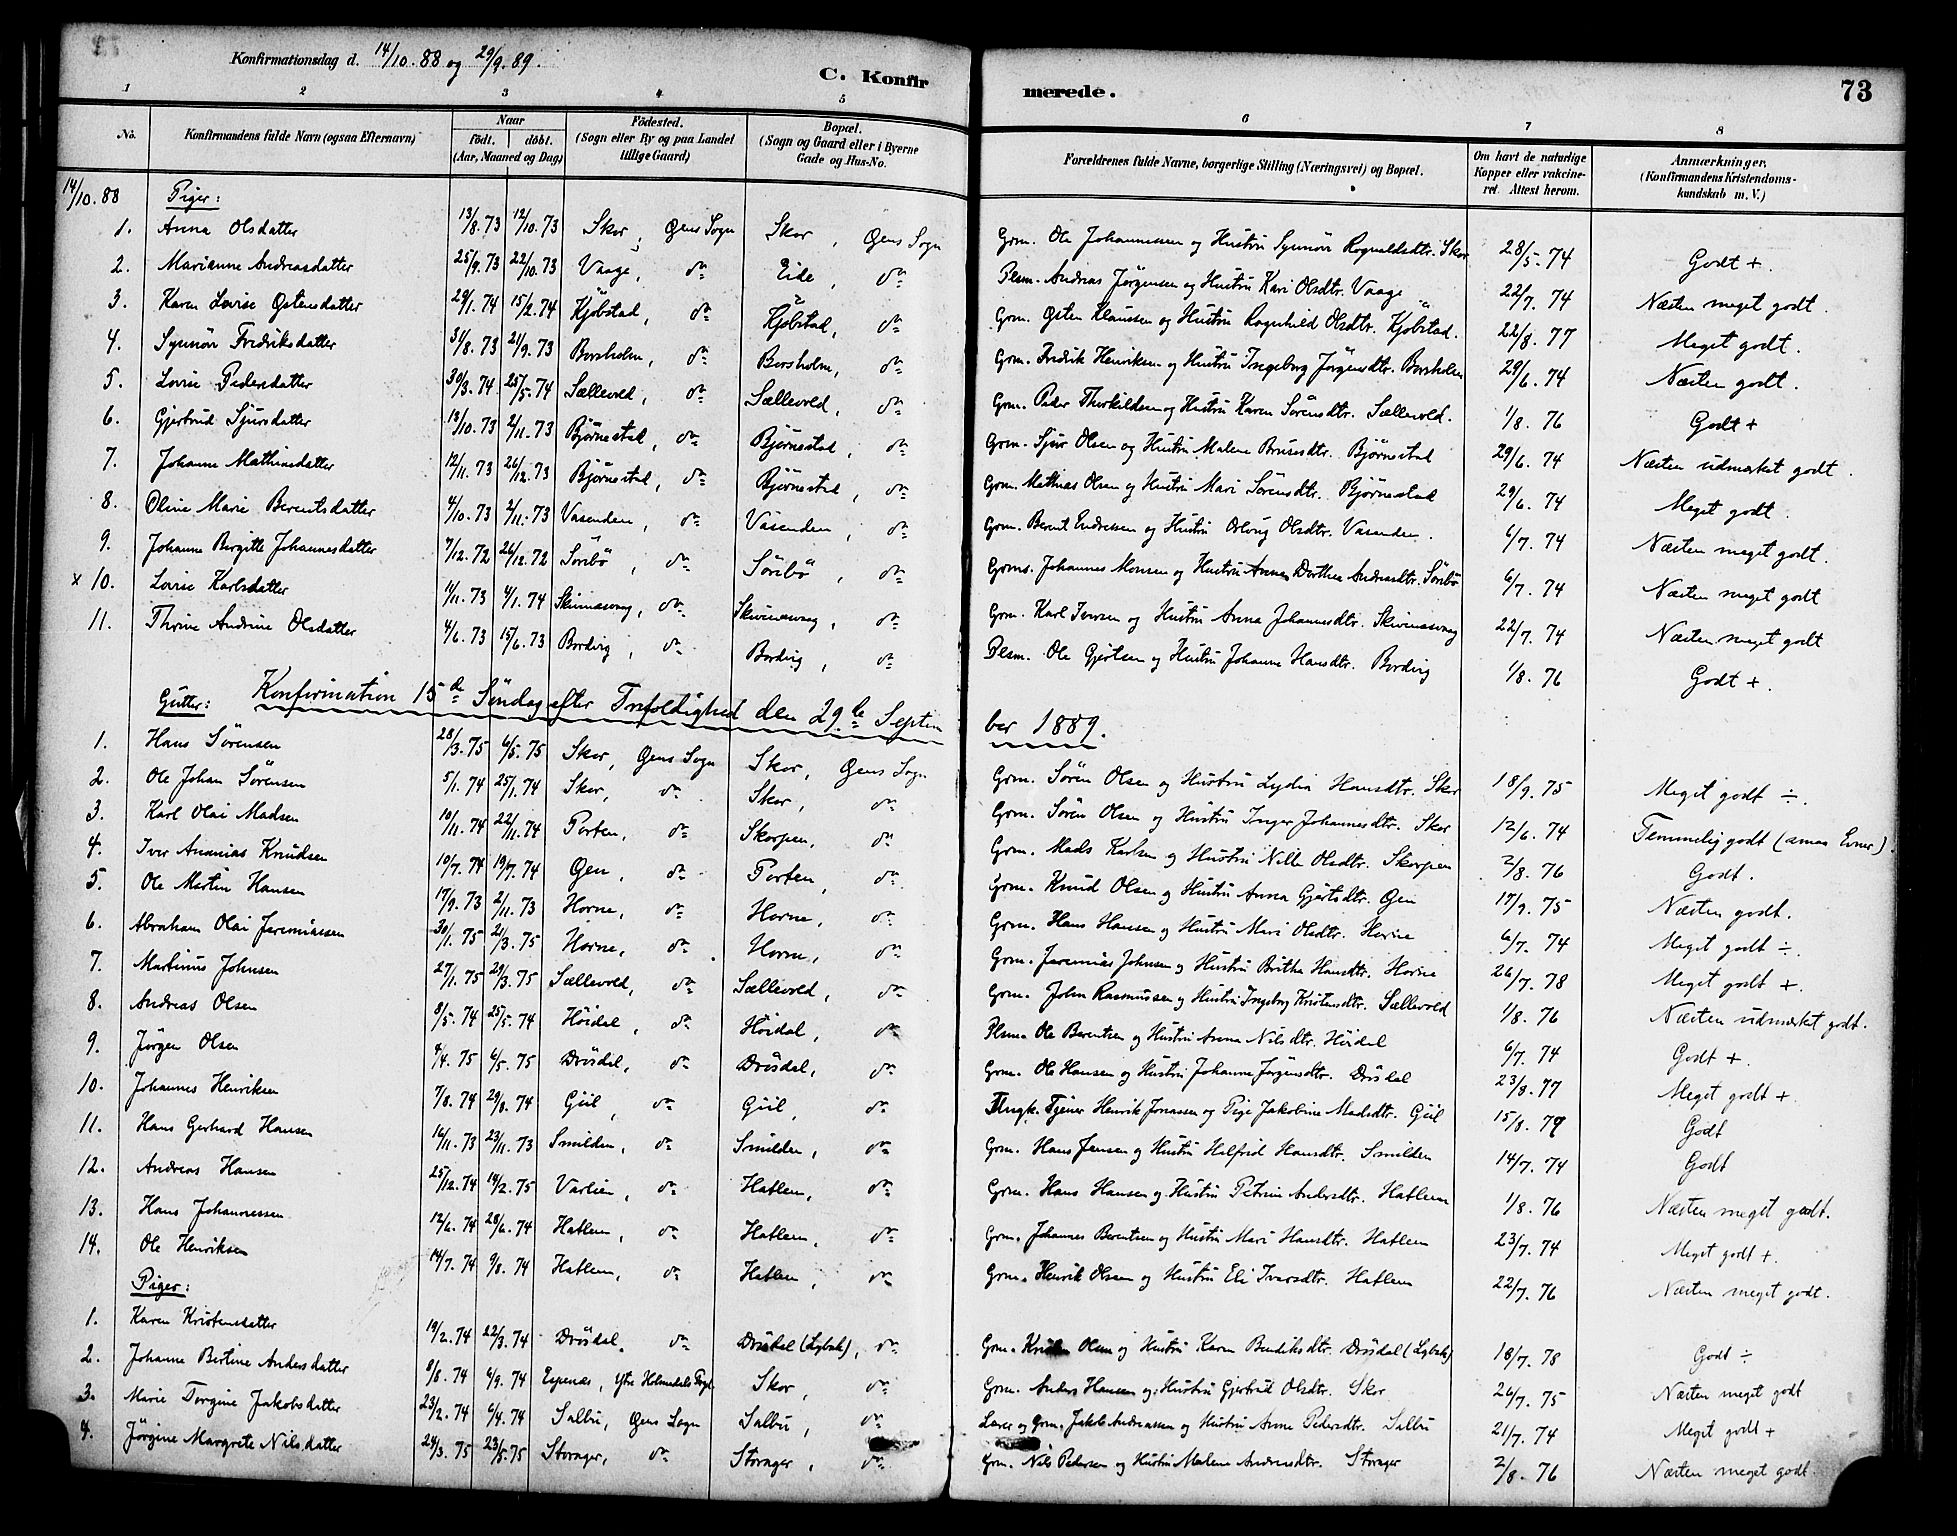 Konfirmationsdag d. 14/10. 88 og 29/9. 89.
C. Konfirmerede. 73
1 2 3 4 5 6 7 8
No. | Konfirmandens fulde Navn (ogsaa Efternavn) | Naar født. | døbt. (Aar, Maaned og Dag) | Fødested. (Sogn eller By og paa Landet tillige Gaard) | Bopæl. (Sogn og Gaard eller i Byerne Gade og Hus-No. | Forældrenes fulde Navne, borgerlige Stilling (Næringsvei) og Bopæl. | Om havt de naturlige Kopper eller vakcineret. Attest herom. | Anmærkninger. (Konfirmandens Kristendomskundskab m. V.)
14/10. 88 Piger:
1. Anna Olsdatter 13/8. 73 12/10. 73 Skor, Øens Sogn Skor, Øens Sogn Grm. Ole Johannessen og Hustru Synnöv Rognaldsdtr. Skor 28/5. 74 Godt +.
2. Marianne Andreasdatter 25/9. 73 22/10. 73 Vaage, do Eide, do Plsm. Andreas Jörgensen og Hustru Kari Olsdtr. Vaage 22/7. 74 Næsten meget godt.
3. Karen Lovise Østensdatter 29/1. 74 15/2. 74 Kjöbstad, do Kjöbstad, do Grm. Østen Klaussen og Hustru Ragnhild Olsdtr. Kjöbstad. 22/8. 77 Meget godt.
4. Synnöv Fredriksdatter 31/8. 73 21/9. 73 Borsholm, do Borsholm, do Grm. Fredrik Henriksen og Hustru Ingeborg Jörgensdtr. Borsholm 29/6. 74 Næsten godt.
5. Lovise Pedersdatter 30/3. 74 25/5. 74 Sællevold, do Sællevold, do Grm. Peder Therkildsen og Hustru Karen Sörensdtr. Sællevold. 1/8. 76 Godt +
6. Gjertrud Sjursdatter 13/10. 73 2/11. 73 Bjørnestad, do Bjørnestad, do Grm. Sjur Olsen og Hustru Malene Brusesdtr. Bjørnestad 29/6. 74 Næsten udmærket godt.
7. Johanne Mathiasdatter 12/11. 73 26/12. 73 Bjørnestad, do Bjørnestad, do Grm. Mathias Olsen og Hustru Mari Sörensdtr. Bjørnestad 29/6. 74 Meget godt.
8. Oline Marie Berentsdatter 4/10. 73 2/11. 73 Vasenden, do Vasenden, do Grm. Berent Endressen og Hustru Oslaug Olsdtr. Vasenden. 6/7. 74 Næsten meget godt.
9. Johanne Birgitte Johannesdatter 7/12. 72 26/12. 72 Söribö, do Söribö, do Grms. Johannes Monsen og Hustru Anna Dorthea Andreasdtr. Söribö 6/7. 74 Næsten meget godt
x 10. Lovise Karlsdatter 11/11. 73 4/1. 74 Skivenesvaag, do Skivenesvaag, do Grm. Karl Iversen og Hustru Anna Johannesdtr. Skivenesvaag 22/7. 74 Næsten meget godt
11. Thrine Andrine Olsdatter 4/6. 73 15/6. 73 Bordvig, do Bordvig, do Plsm. Ole Gjertsen og Hustru Johanne Hansdtr. Bordvig 1/8. 76 Godt +.
Konfirmation 15de Söndag efter Trefoldighed den 29de September 1889.
Gutter:
1. Hans Sörensen 28/3. 75 6/5. 75 Skor, Øens Sogn Skor, Øens Sogn Grm. Sören Olsen og Hustru Lydia Hansdtr. Skor 18/9. 75 Meget godt ÷.
2. Ole Johan Sörensen 5/1. 74 25/1. 74 Skor, do Skor, do Grm. Sören Olsen og Hustru Inger Johannesdtr. Skor 12/6. 74 Temmelig godt (smaa Evner).
3. Karl Olai Madsen 10/11. 74 22/11. 74 Porten, do Skorpen, do Grm. Mads Karlsen og Hustru Nille Olsdtr. Skorpen 2/8. 76 Godt.
4. Iver Ananias Knudsen 10/7. 74 19/7. 74 Øen, do Porten, do Grm. Knud Olsen og Hustru Anna Gjertsdtr. Øen 17/9. 75 Næsten godt.
5. Ole Martin Hansen 17/9. 73 2/11. 73 Horne, do Horne, do Grm. Hans Hansen og Hustru Mari Olsdtr. Horne 6/7. 74 Meget godt ÷.
6. Abraham Olai Jeremiassen 30/1. 75 21/3. 75 Horne, do Horne, do Grm. Jeremias Johnsen og Hustru Brithe Hansdtr. Horne 26/7. 78 Meget godt +.
7. Martinus Johnsen 27/1. 75 29/3. 75 Sællevold, do Sællevold, do Grm. John Rasmussen og Hustru Ingeborg Kristensdtr. Sællevold 1/8. 76 Næsten udmærket godt.
8. Andreas Olsen 8/5. 74 25/5. 74 Höidal, do Höidal, do Plsm. Ole Berentsen og Hustru Anna Nilsdtr. Höidal 6/7. 74 Godt +.
9. Jörgen Olsen 4/4. 75 6/5. 75 Drösdal, do Drösdal, do Grm. Ole Hansen og Hustru Johanne Jörgensdtr. Drösdal 23/8. 77 Meget godt +.
10. Johannes Henriksen 7/8. 74 29/8. 74 Giil, do Giil, do Ungk. Tjener Henrik Jonassen og Pige Jakobine Madsdtr. Giil 15/8. 79 Godt
11. Hans Gerhard Hansen 16/11. 73 23/11. 73 Smilden, do Smilden, do Grm. Hans Jensen og Hustru Helfrid Hansdtr. Smilden 14/7. 74 Godt
12. Andreas Hansen 25/12. 74 14/2. 75 Varlien, do Hatlem, do Grm. Hans Hansen og Hustru Petrine Andersdtr. Hatlem 1/8. 76 Næsten meget godt.
13. Hans Johannessen 12/6. 74 28/6. 74 Hatlem, do Hatlem, do Grm. Johannes Berentsen og Hustru Mari Hansdtr. Hatlem 23/7. 74 Meget godt +.
14. Ole Henriksen 14/7. 74 9/8. 74 Hatlem, do Hatlem, do Grm. Henrik Olsen og Hustru Eli Iversdtr. Hatlem 22/7. 76 Næsten meget godt.
Piger:
1. Karen Kristensdatter 19/2. 74 22/3. 74 Drösdal, do Drösdal (Lybæk), do Grm. Kristen Olsen og Hustru Karen Bendiksdtr. Drösdal (Lybæk) 18/7. 78 Godt ÷
2. Johanne Bertine Andersdatter 8/8. 74 6/9. 74 Espenæs, Ytre Holmedals Prgl. Skor, do Grm. Anders Hansen og Hustru Gjertrud Olsdtr. Skor 26/7. 75 Næsten meget godt
3. Marie Torgine Jakobsdatter 23/2. 74 6/4. 74 Salbu, Øens Sogn Salbu, do Lærer og Grm. Jakob Andreassen og Hustru Anne Pedersdtr. Salbu 21/7. 74 Meget godt +
4. Jörgine Margrete Nilsdatter 24/3. 75 23/5. 75 Storager, do Storager, do Grm. Nils Pedersen og Hustru Malene Andreasdtr. Storager 2/8. 76 Næsten meget godt.